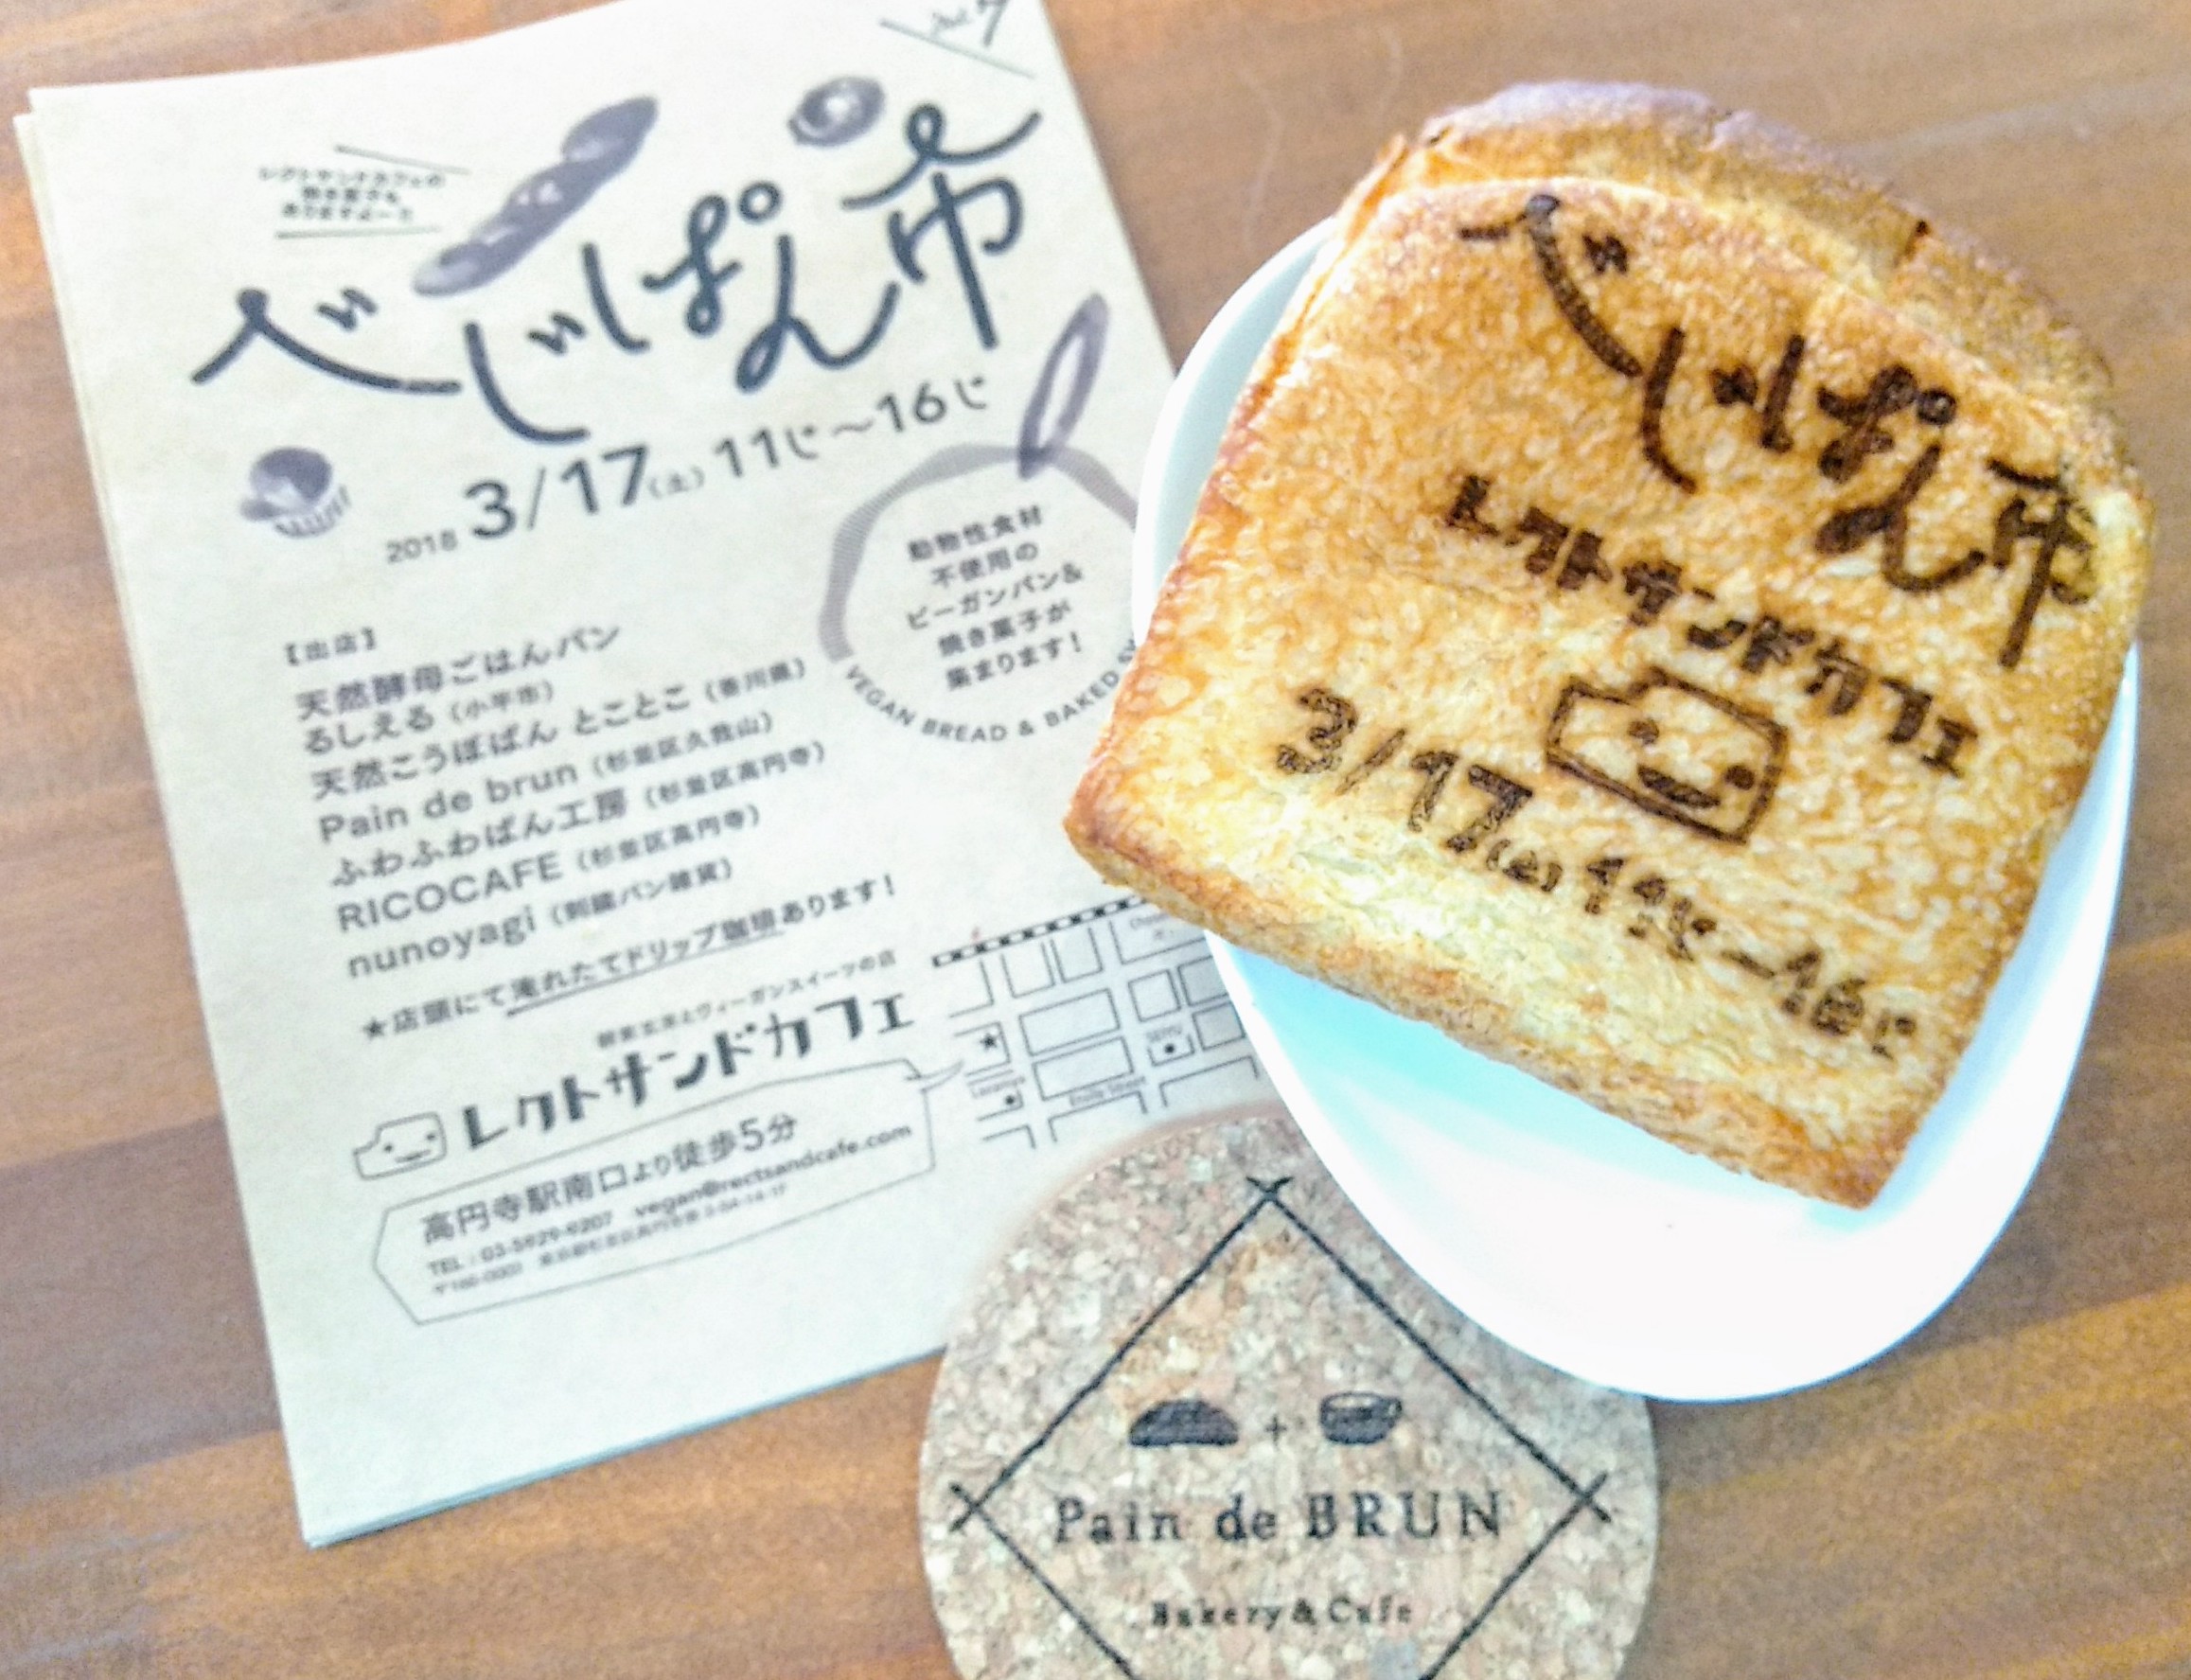 vol.7
レクトサンドカフェの
焼き菓子も
ありますよー!!
べじぱん市
2018 3/17(土) 11じ〜16じ
動物性食材
不使用の
ビーガンパン&
焼き菓子が
集まります!
VEGAN BREAD & BAKED
【出店】
天然酵母ごはんパン
るしえる(小平市)
天然こうぼぱん とことこ(香川県)
Pain de brun(杉並区久我山)
ふわふわぱん工房(杉並区高円寺)
RICOCAFE(杉並区高円寺)
nunoyagi(刺繍パン雑貨)
★店頭にて淹れたてドリップ珈琲あります!
酵素玄米とヴィーガンスイーツの店
レクトサンドカフェ
高円寺駅南口より徒歩5分
TEL:03-5929-9207 vegan@rectsandcafe.com
べじぱん市
レクトサンドカフェ
3/17(土)11じ〜16じ
+
Pain de BRUN
Bakery & Cafe